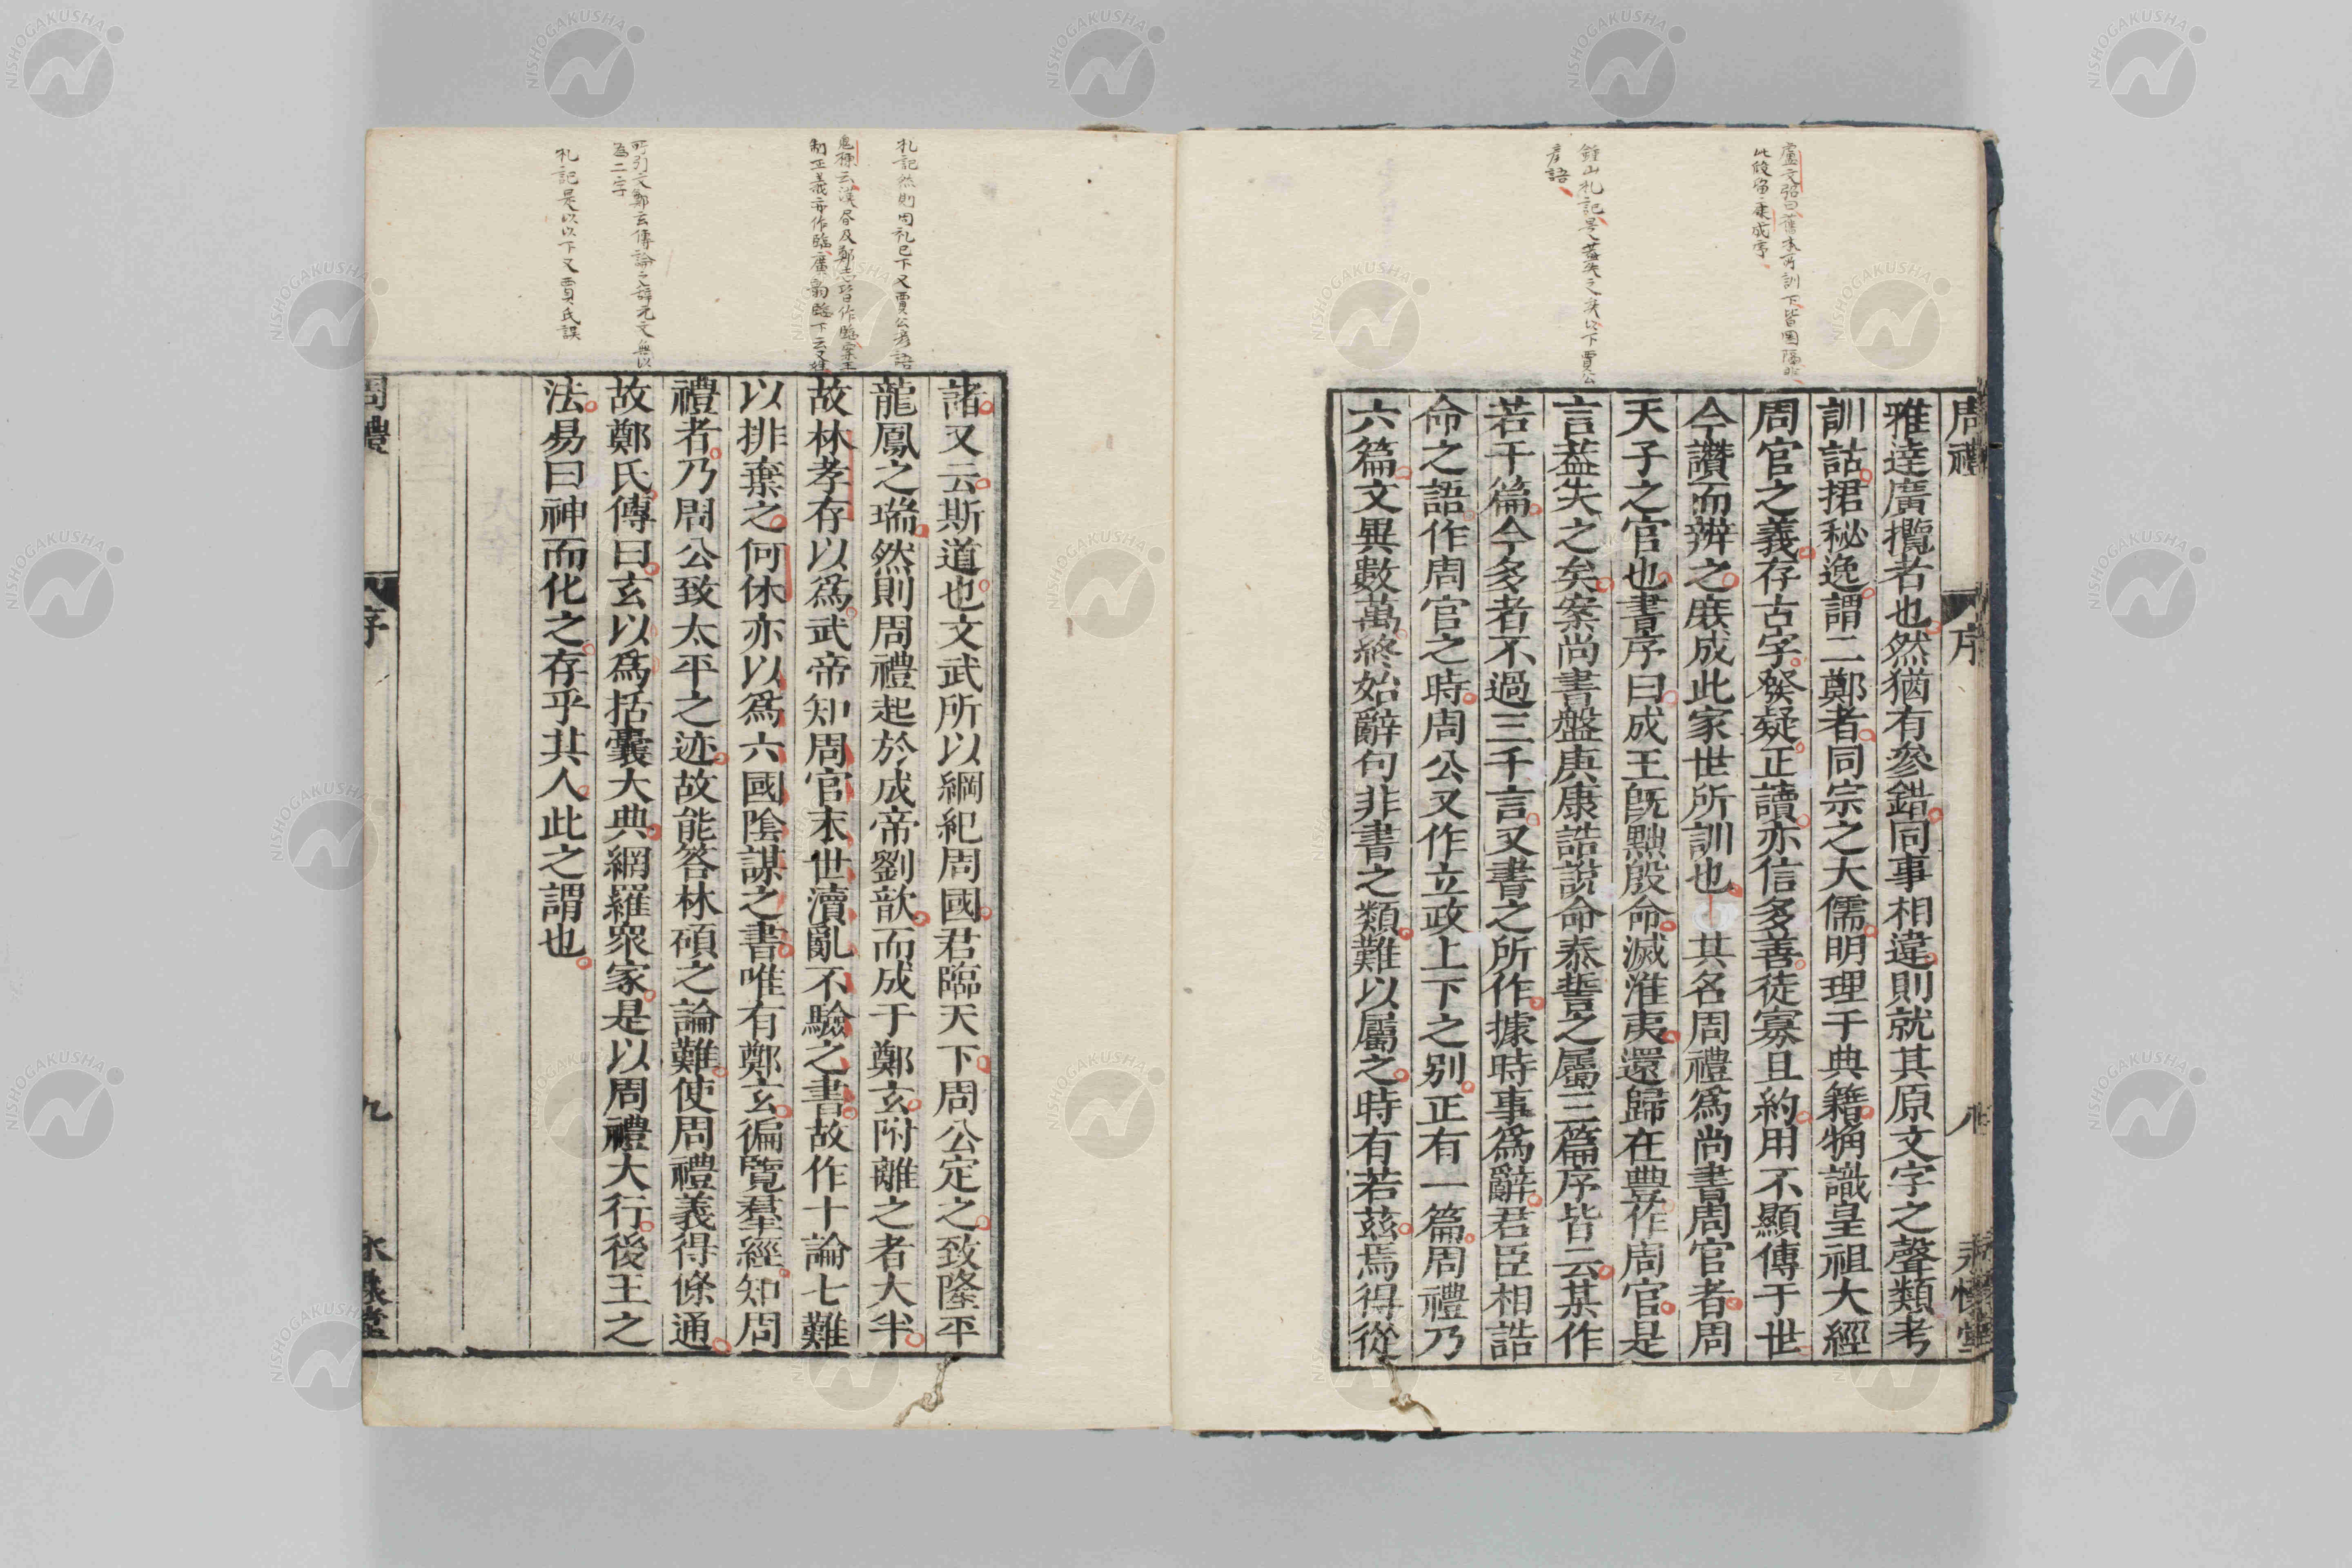 周禮
序
八
永懷堂
雅達廣攬者也然猶有參錯同事相違則就其原文字之聲類考
訓詁捃秘逸謂二鄭者同宗之大儒明理于典籍觕識皇祖大經
周官之義存古字發疑正讀亦信多善徒寡且約用不顯傳于世
今讚而辨之庶成此家世所訓也其名周禮爲尚書周官者周
天子之官也書序曰成王旣黜殷命滅淮夷還歸在豊作周官是
言葢失之矣案尚書盤庚康誥說命泰誓之屬三篇序皆云某作
若干篇今多者不過三千言又書之所作據時事爲辭君臣相誥
命之語作周官之時周公又作立政上下之别正有一篇周禮乃
六篇文異數萬終始辭句非書之類難以屬之時有若茲焉得從
諸又云斯道也文武所以綱紀周國君臨天下周公定之致隆平
龍鳳之瑞然則周禮起於成帝劉歆而成于鄭玄附離之者大半
故林孝存以爲武帝知周官末世瀆亂不驗之書故作十論七難
以排棄之何休亦以爲六國陰謀之書唯有鄭玄徧覽羣經知周
禮者乃周公致太平之迹故能答林碩之論難使周禮義得條通
故鄭氏傳曰玄以爲括囊大典網羅衆家是以周禮大行後王之
法易曰神而化之存乎其人此之謂也
周禮
序
九
永懷堂
盧文弨曰舊本所訓下皆圈隔
此段當康成序
鍾山札記是葢失之矣以下賈公
彥語
札記然則周礼已下又賈公彥語
所引文鄭玄傳論之辞元文無以
為二字
札記是以以下又賈氏語